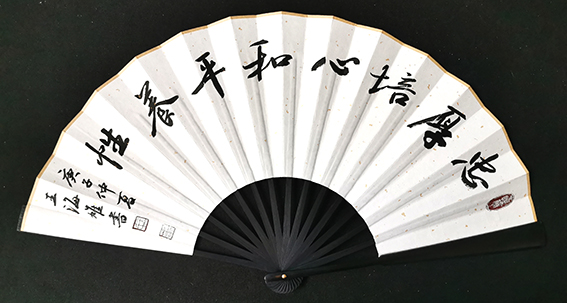 忠厚培心和平養性
庚子仲夏
王海雄書